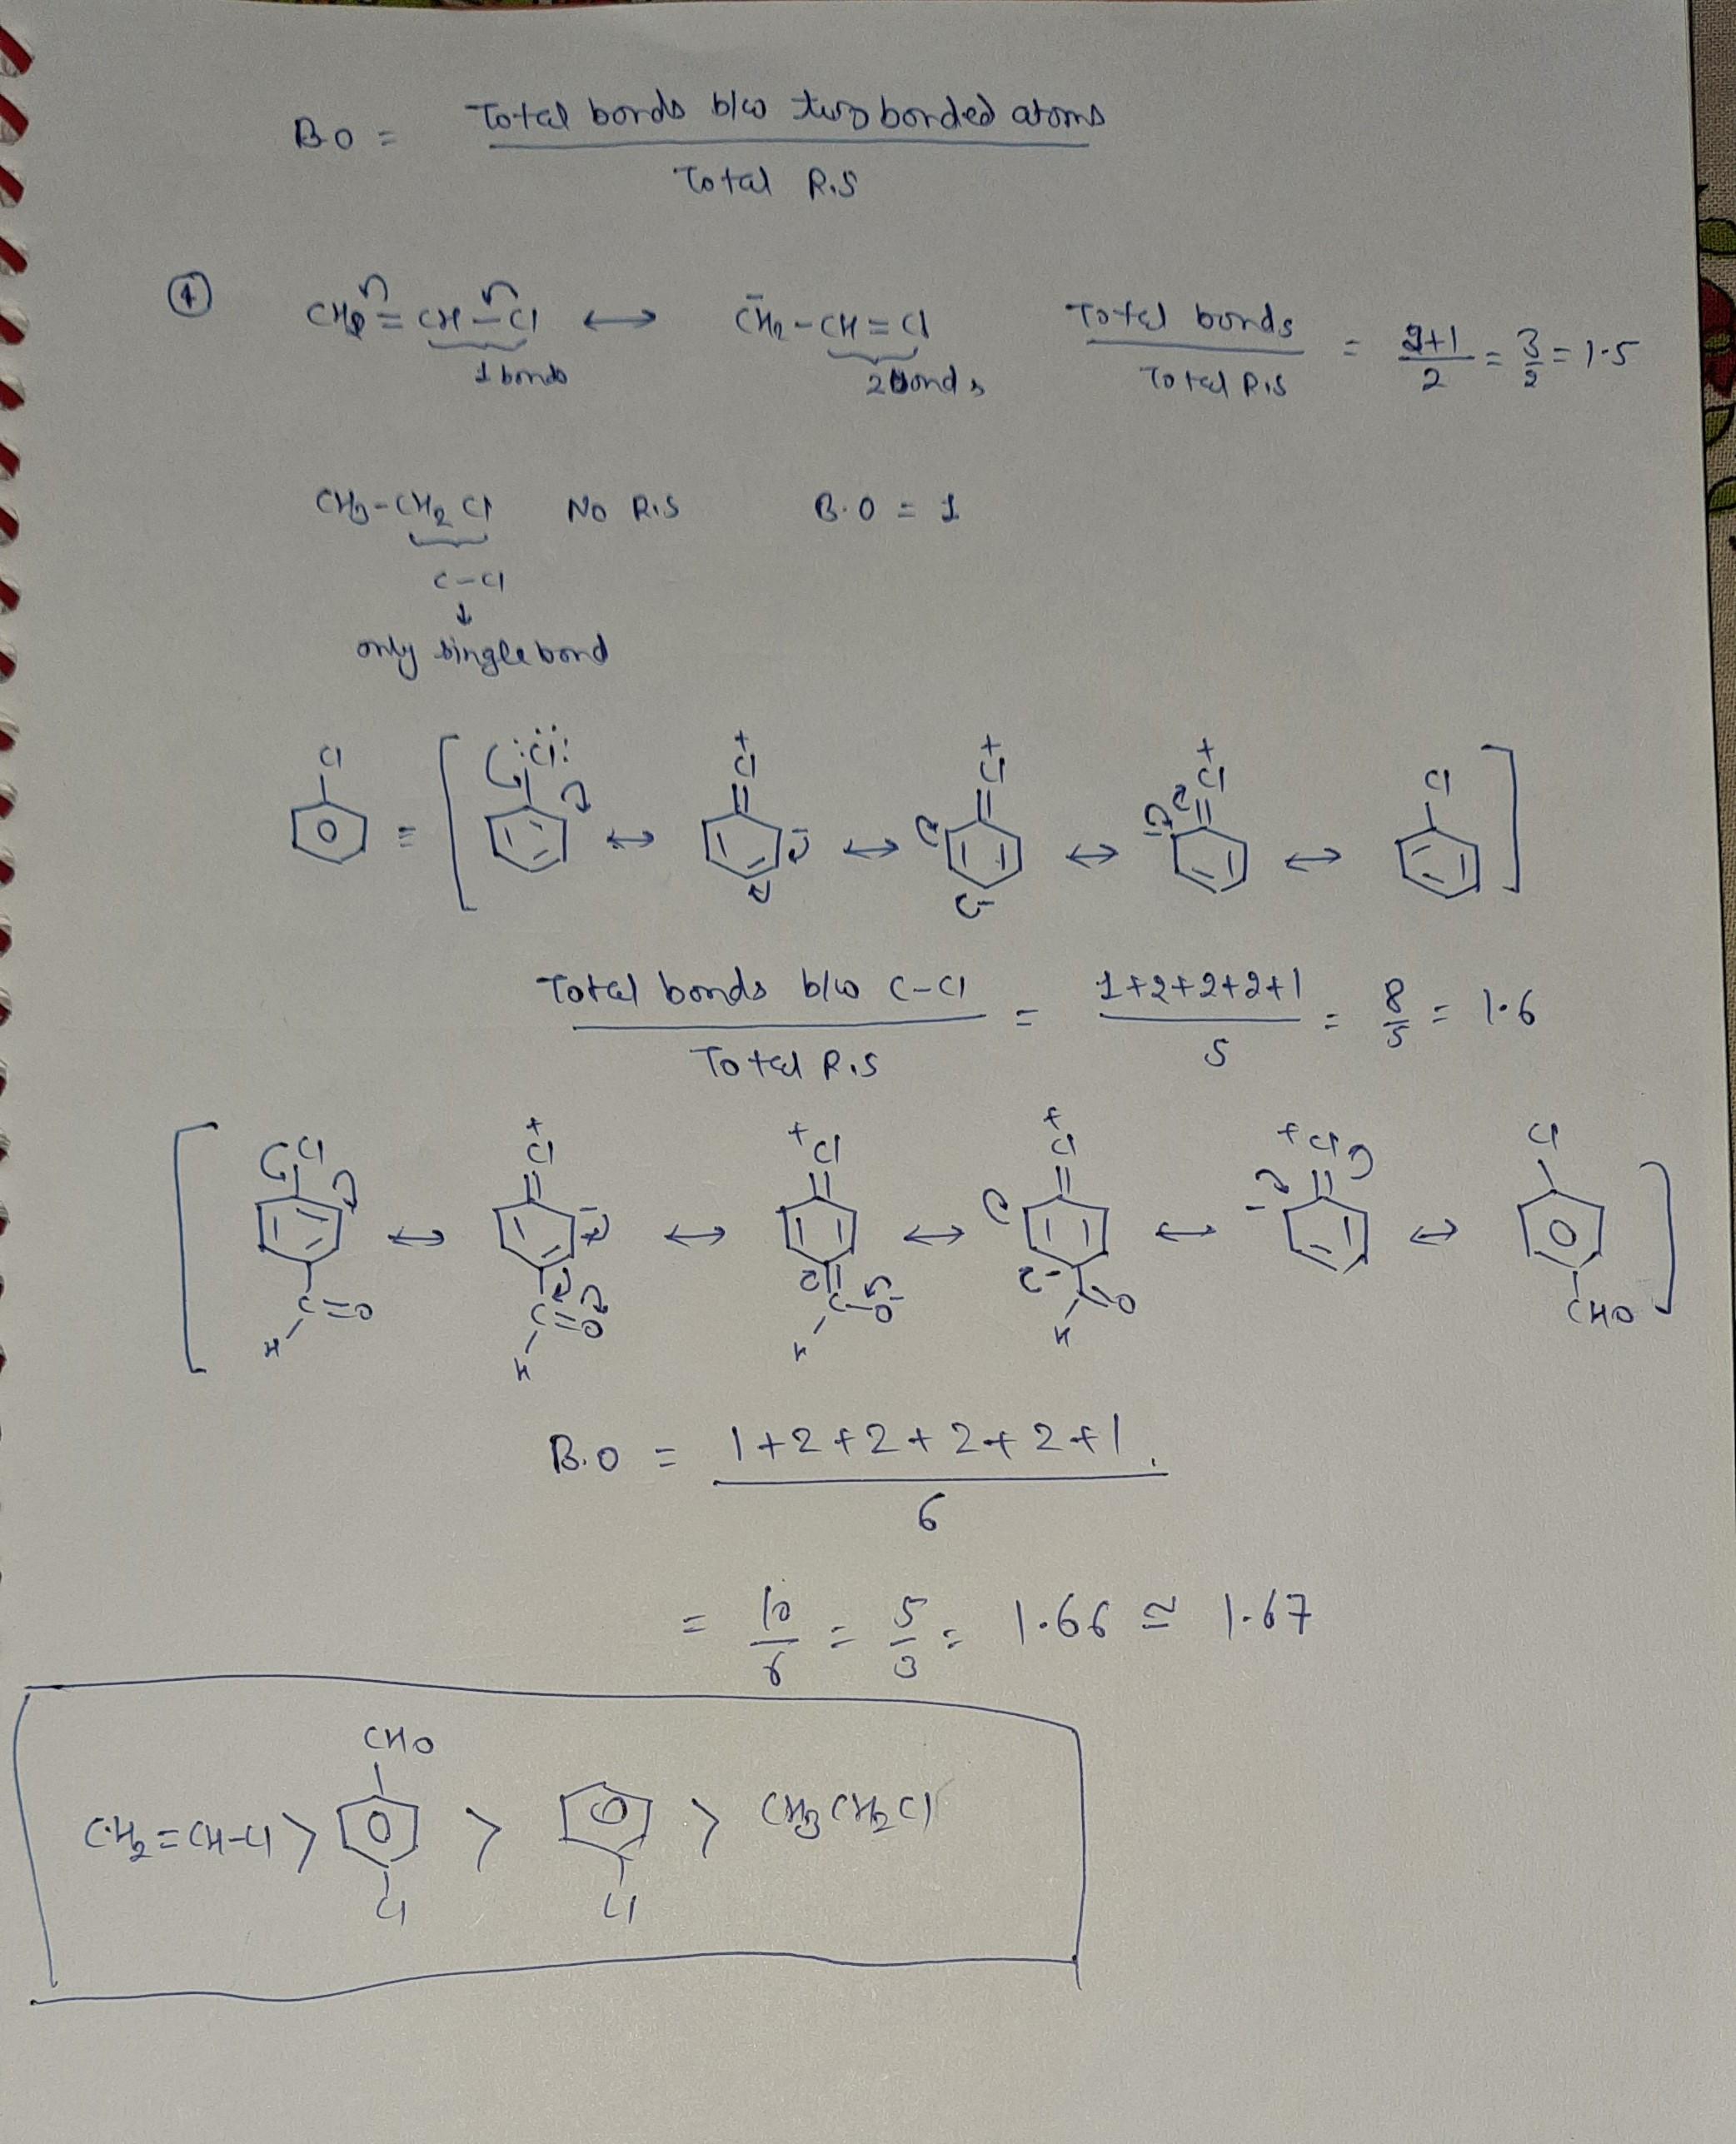 B.O = Total bonds b/w two bonded atoms
Total R.S
① CH2 = CH - Cl ↔ C̄H2 - CH = Cl Total bonds = 2+1 = 3 = 1.5
1 bonds 2 bonds Total R.S 2 2
CH3-CH2 Cl No R.S B.O = 1
C-Cl
↓
only single bond
Cl :Cl: + Cl + Cl + Cl Cl
= [ ↔ ↔ ↔ ↔ ]
Total bonds b/w C-Cl = 1+2+2+2+1 = 8 = 1.6
Total R.S 5 5
[ Cl + Cl + Cl + Cl + Cl Cl
↔ ↔ ↔ ↔ ↔ ]
C=O C=O C-O C=O CHO
H H H H
B.O = 1+2+2+2+2+1.
6
= 10 = 5 = 1.66 ≅ 1.67
6 3
CHO
CH2=CH-Cl > > > CH3CH2Cl
Cl Cl